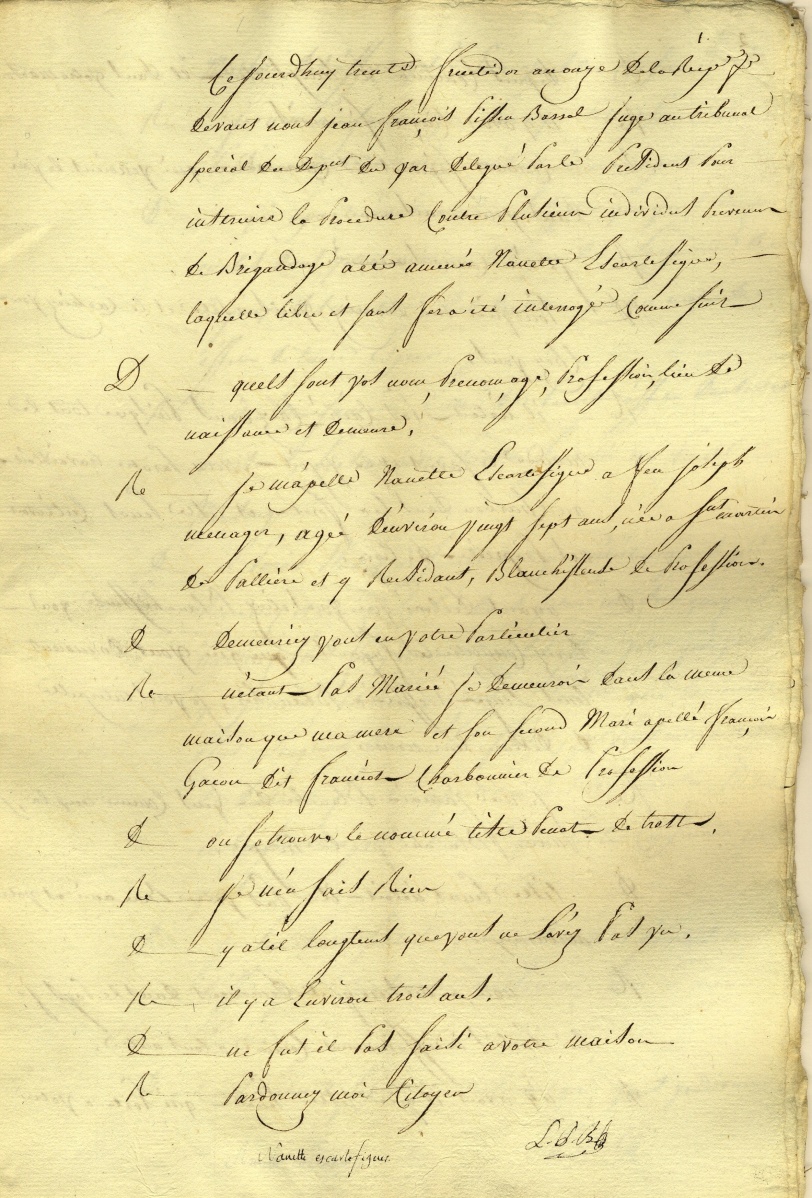 1.
Ce jourdhuy trente fructidor an onze de la Rep. fse
devant nous jean françois Bassel juge au tribunal
special du Dept du var delegué par le President pour
instruire la procedure Contre plusieurs individus prevenus
de Brigandage a été amenée Nanette Escartefigue,
laquelle libre et sans fers a été interrogé Comme suit
D quels sont vos nom, prenom, age, profession, lieu de
naissance et demeure,
Re Je m'apelle Nanette Escartefigue a feu joseph
menager, agée denviron vingt sept ans, née a St martin
de Pallière et y residant, Blanchisseuse de profession.
D demeuriez vous en votre particulier
Re n'étant pas Mariée je demeurois dans la meme
maison que ma mere et son second Mari apellé françois
Gacon dit franciot Charbonnier de profession
D ou se trouve le nommé titre Penot de trest.
Re je n'en sais rien
D y a til longtems que vous ne l'avez pas vu.
Re il y a Environ trois ans.
D ne fut il pas saisi a votre maison
Re pardonnez moi Citoyen
Nanette escartefigues.